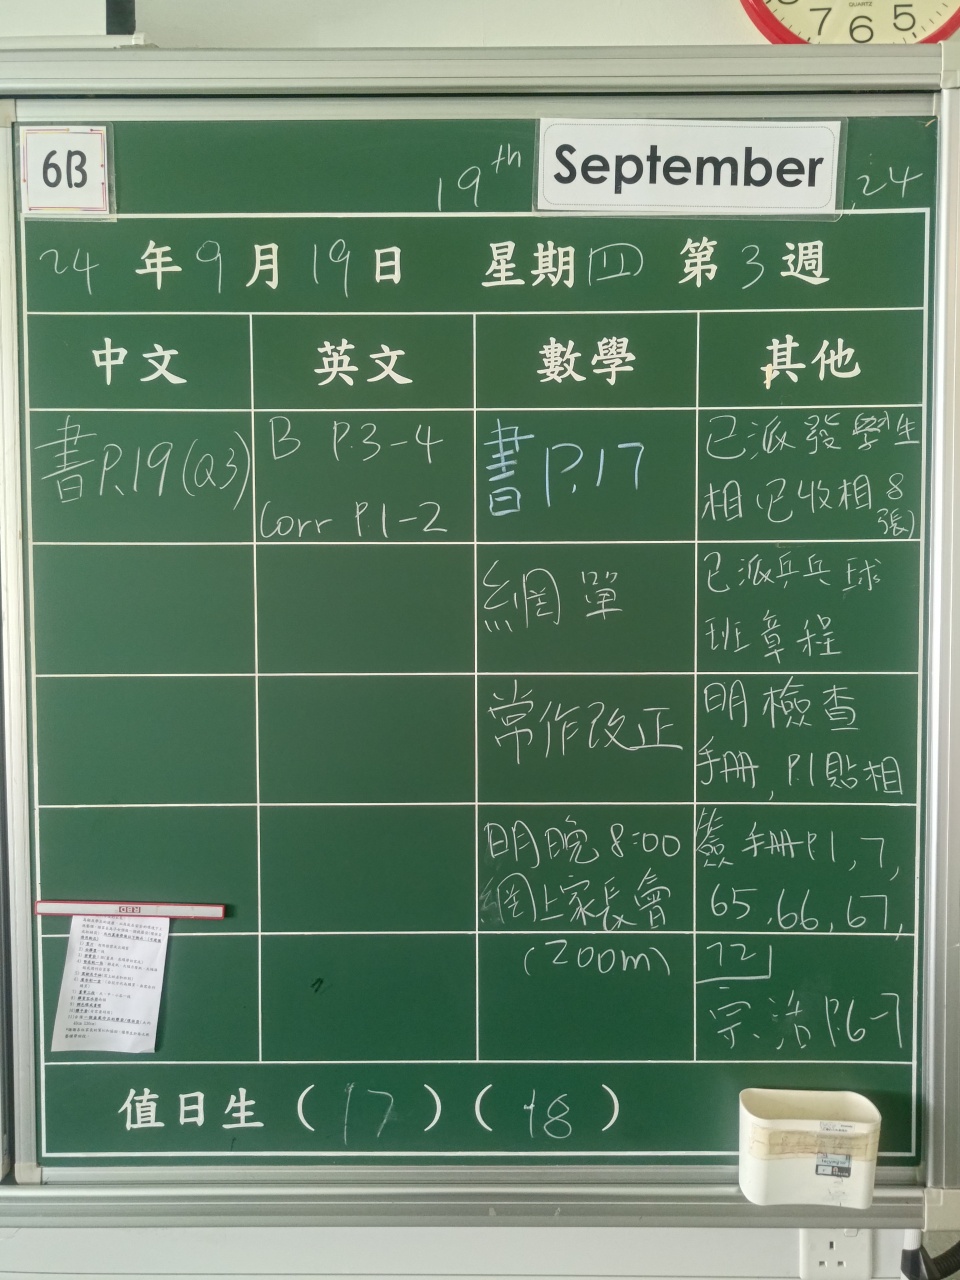 QUARTZ
7 6 5
6B
19th September, 24
24年9月19日 星期四 第3週
中文 英文 數學 其他
書P.19(Q3)
B P.3-4
Corr P.1-2
書P.17
已派發學生
相已收相8
張)
網單
已派乒乓球
班章程
常作改正
明檢查
手冊, P.1貼相
明晚8:00
網上家長會
(Zoom)
簽手冊P.1,7,
65,66,67,
72
宗.活P.6-7
值日生(17)(18)